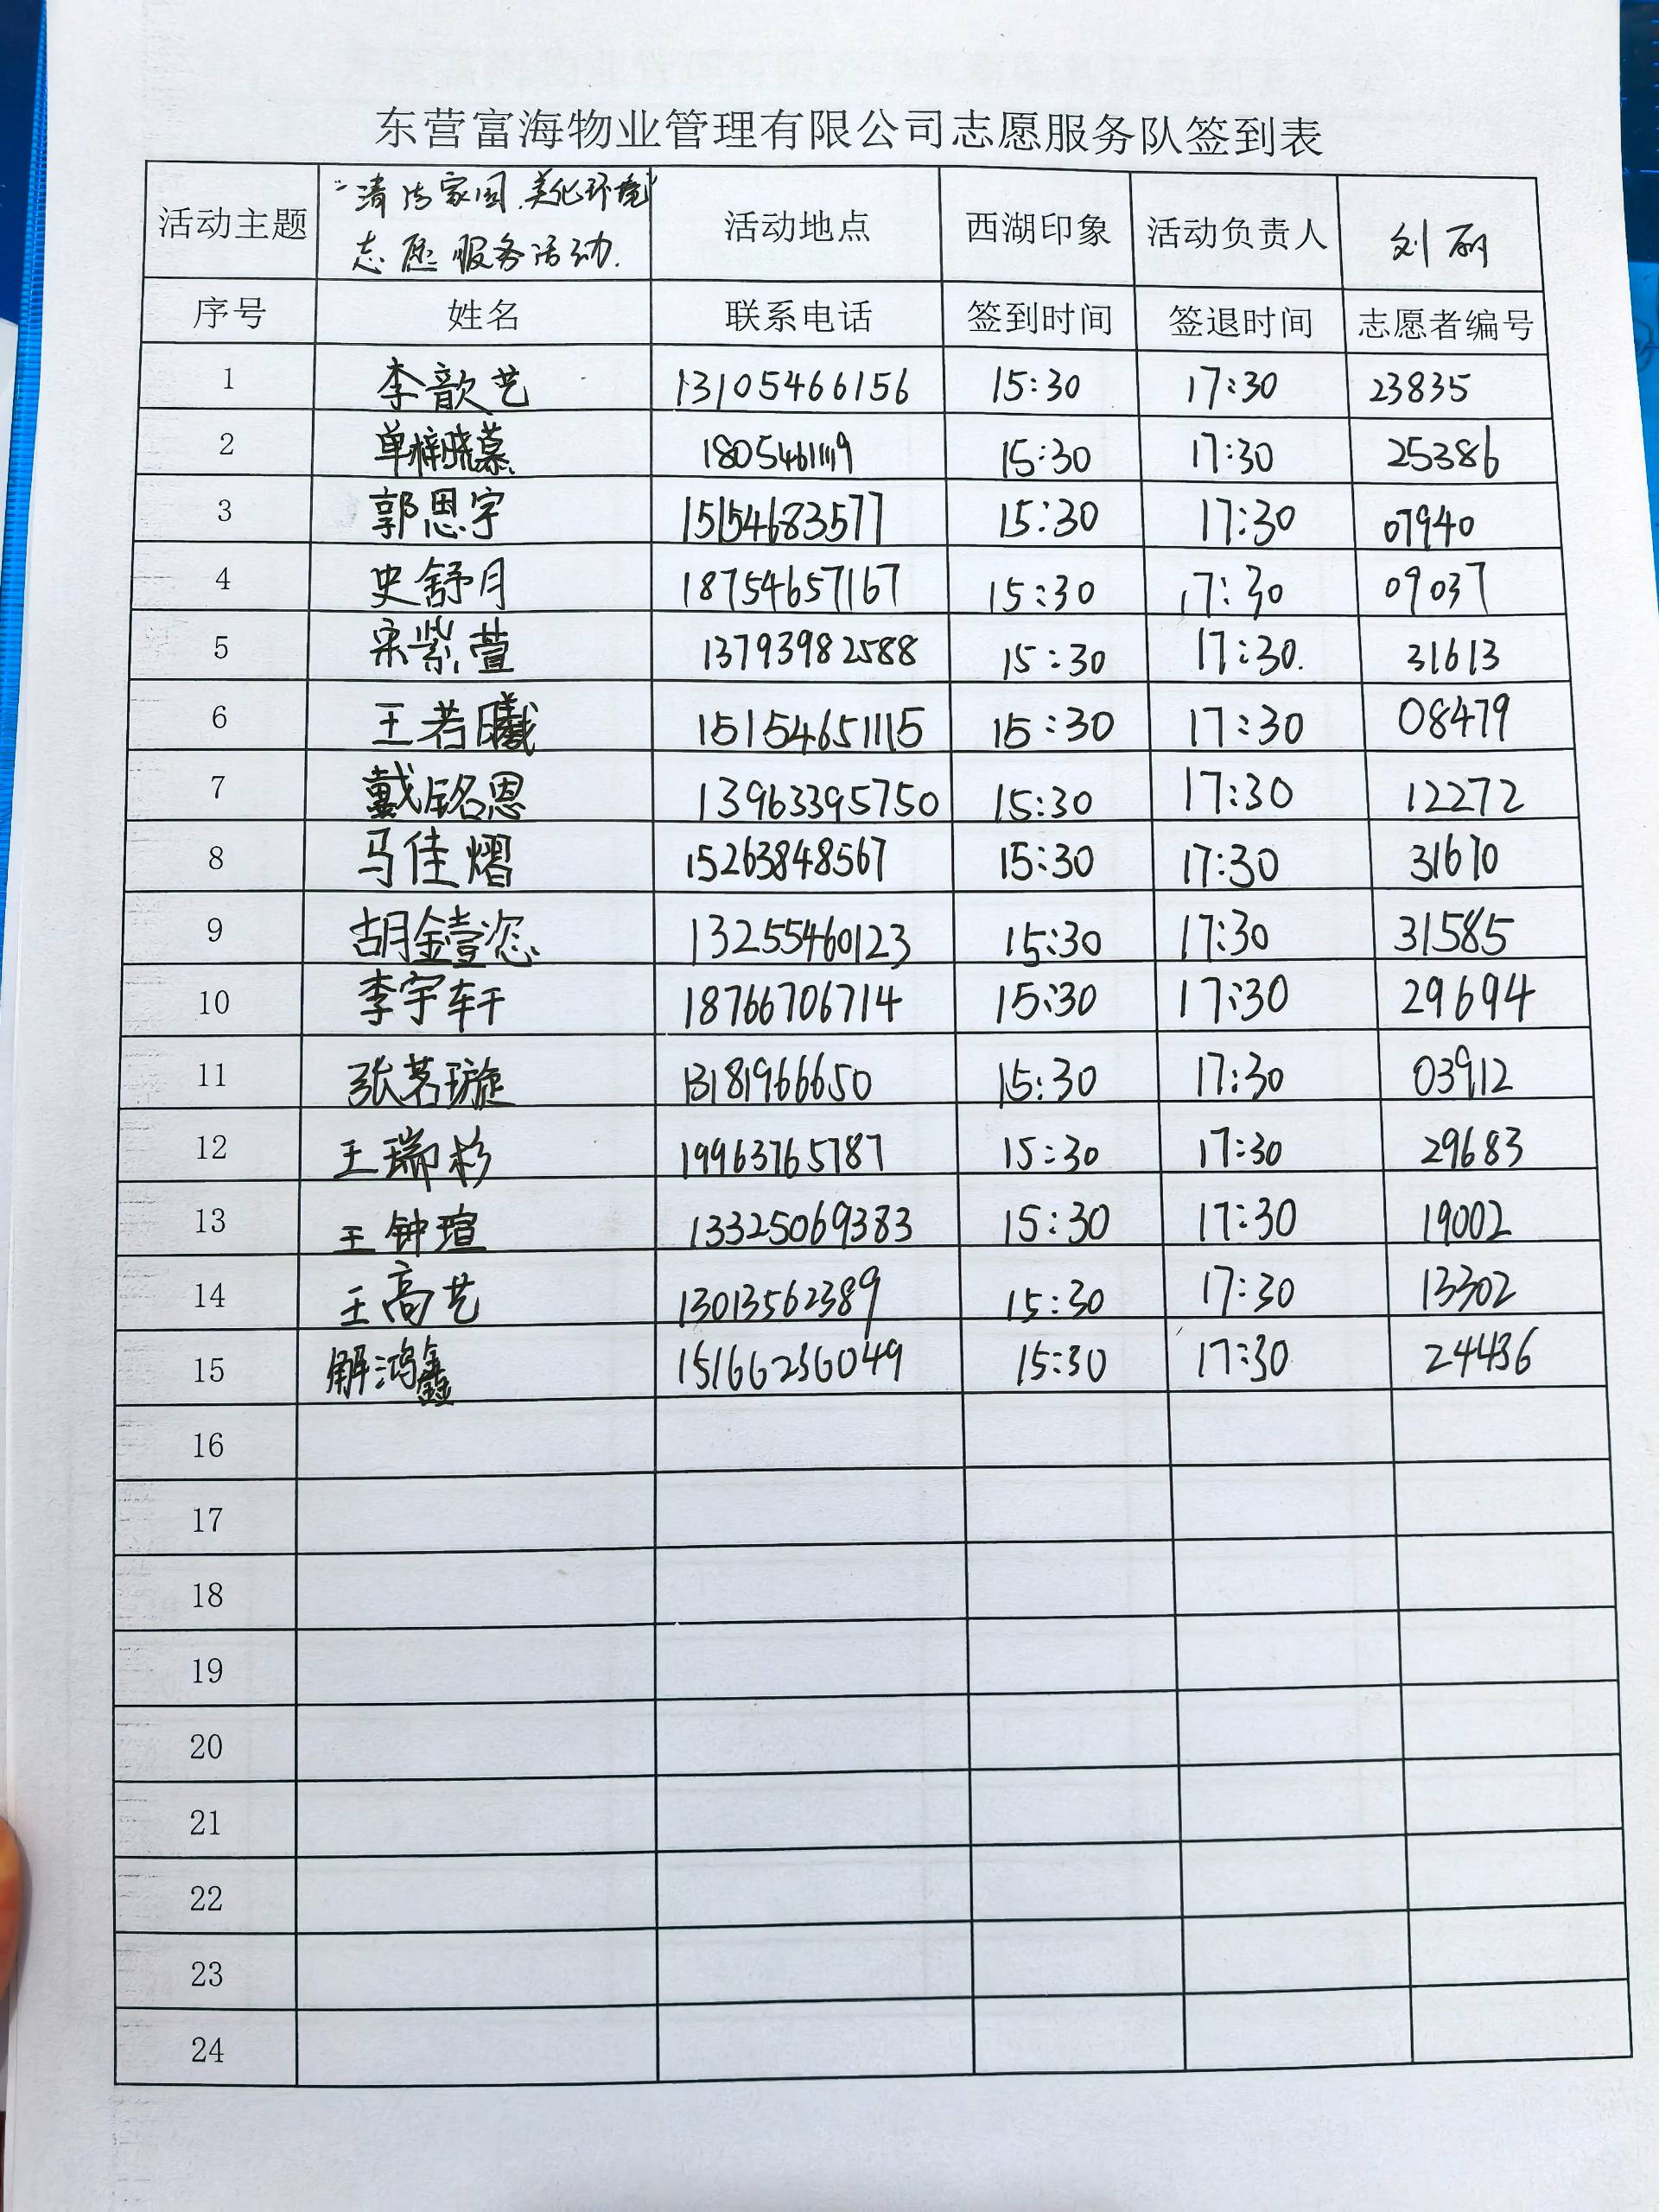 东营富海物业管理有限公司志愿服务队签到表
活动主题 "清洁家园.美化环境" 志愿服务活动. 活动地点 西湖印象 活动负责人 刘丽
序号 姓名 联系电话 签到时间 签退时间 志愿者编号
1 李歆艺 13105466156 15:30 17:30 23835
2 单梓晓慕 18054611119 15:30 17:30 25386
3 郭恩宇 15154683577 15:30 17:30 07940
4 史舒月 18754657167 15:30 17:30 09037
5 宋紫萱 13793982588 15:30 17:30.  31613
6 王若曦 15154651115 15:30 17:30 08479
7 戴铭恩 13963395750 15:30 17:30 12272
8 马佳熠 15263848567 15:30 17:30 31670
9 胡金壹恣 13255460123 15:30 17:30 31585
10 李宇轩 18766706714 15:30 17:30 29694
11 张茗璇 13181966650 15:30 17:30 03912
12 王瑞杉 19963765787 15:30 17:30 29683
13 王钟瑄 13325069383 15:30 17:30 19002
14 王高艺 13013562389 15:30 17:30 13302
15 解鸿鑫 15166236049 15:30 17:30 24436
16
17
18
19
20
21
22
23
24